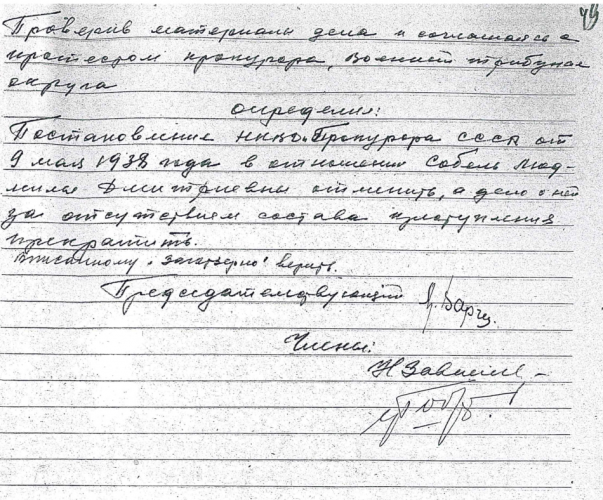 49
Проверив материалы дела и соглашаясь с
протестом прокурора, военный трибунал
округа
определил:
Постановление НКВД и Прокурора СССР от
9 мая 1938 года в отношении Собель Люд-
милы Дмитриевны отменить, а дело о ней
за отсутствием состава преступления
прекратить.
Вписанному верить.
Председательствующий
Члены: